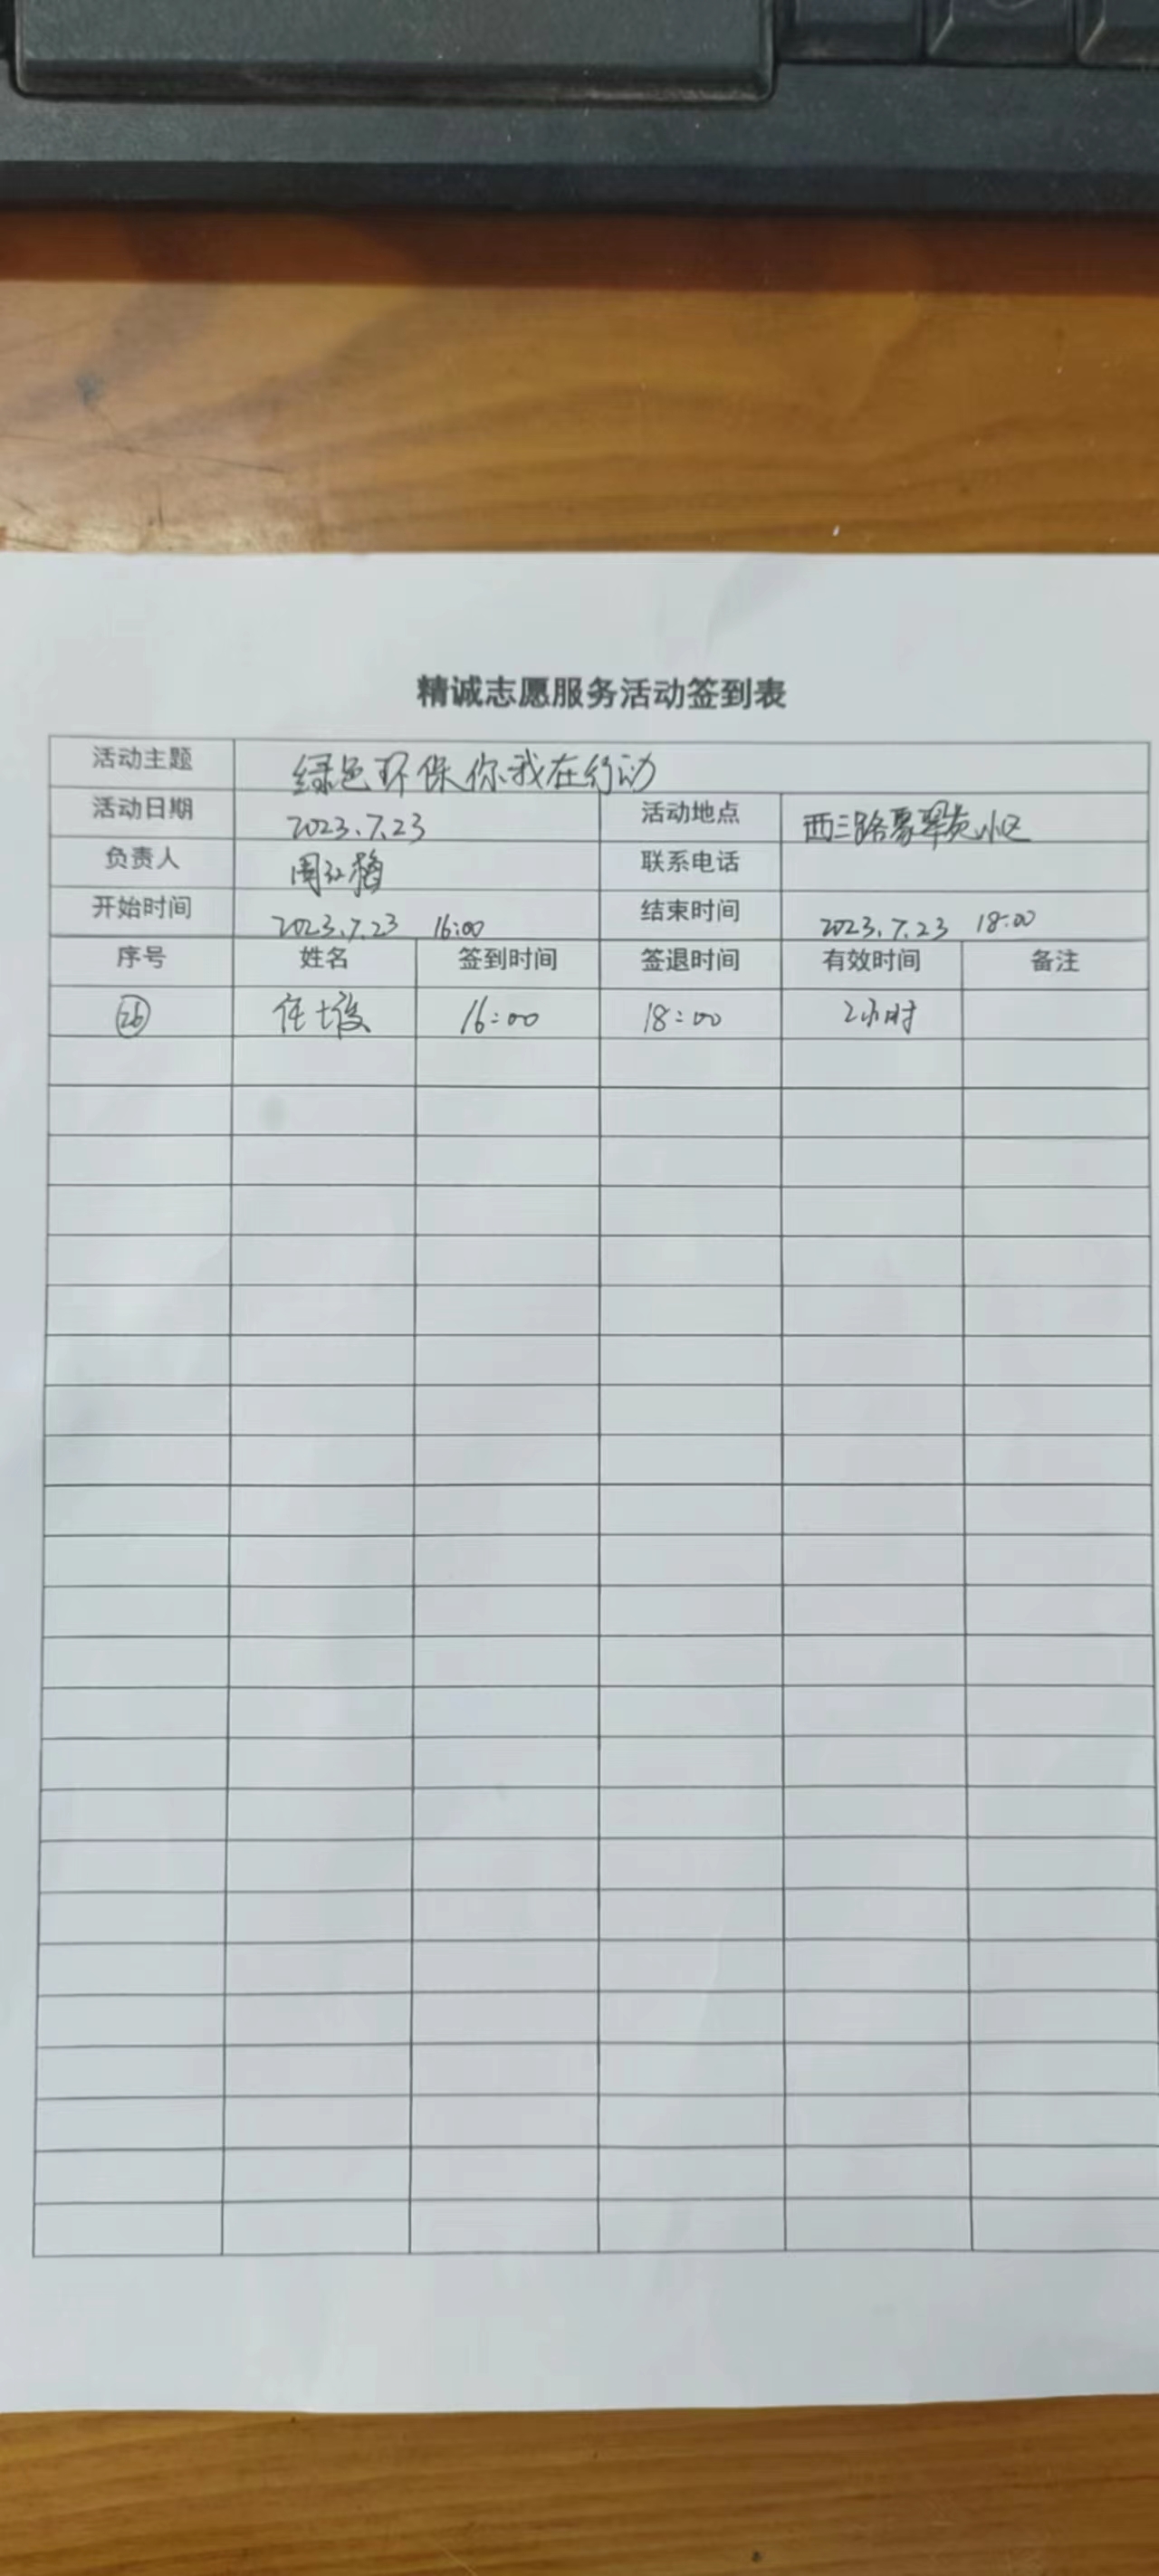 精诚志愿服务活动签到表
活动主题 绿色环保你我在行动
活动日期 2023.7.23 活动地点 西三路翠苑小区
负责人 周红梅 联系电话
开始时间 2023.7.23 16:00 结束时间 2023.7.23 18:00
序号 姓名 签到时间 签退时间 有效时间 备注
26 任 16:00 18:00 2小时